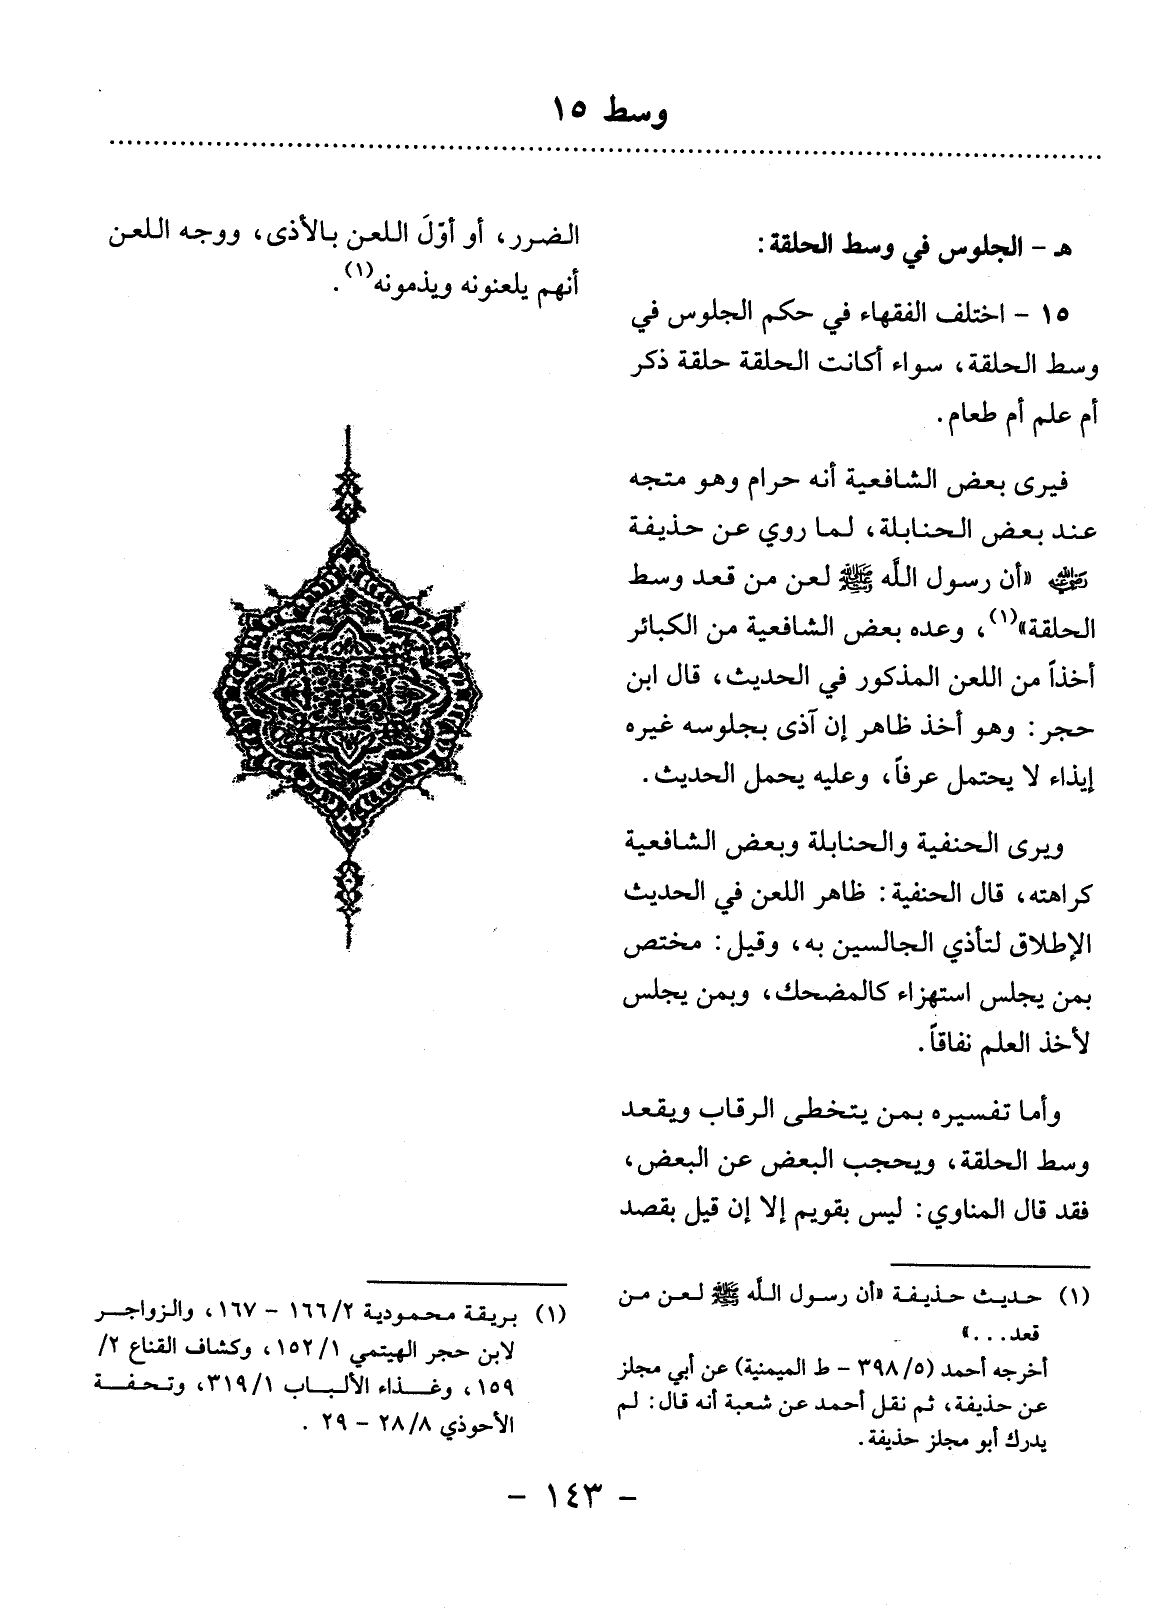 وسط ١٥
هـ - الجلوس في وسط الحلقة:
١٥ - اختلف الفقهاء في حكم الجلوس في
وسط الحلقة، سواء أكانت الحلقة حلقة ذكر
أم علم أم طعام.
فيرى بعض الشافعية أنه حرام وهو متجه
عند بعض الحنابلة، لما روي عن حذيفة
رضي الله عنه «أن رسول اللَّه ﷺ لعن من قعد وسط
الحلقة»(١)، وعده بعض الشافعية من الكبائر
أخذاً من اللعن المذكور في الحديث، قال ابن
حجر: وهو أخذ ظاهر إن آذى بجلوسه غيره
إيذاء لا يحتمل عرفاً، وعليه يحمل الحديث.
ويرى الحنفية والحنابلة وبعض الشافعية
كراهته، قال الحنفية: ظاهر اللعن في الحديث
الإطلاق لتأذي الجالسين به، وقيل: مختص
بمن يجلس استهزاء كالمضحك، وبمن يجلس
لأخذ العلم نفاقاً.
وأما تفسيره بمن يتخطى الرقاب ويقعد
وسط الحلقة، ويحجب البعض عن البعض،
فقد قال المناوي: ليس بقويم إلا إن قيل بقصد
(١) حديث حذيفة «أن رسول اللَّه ﷺ لعن من
قعد...»
أخرجه أحمد (٣٩٨/٥ - ط الميمنية) عن أبي مجلز
عن حذيفة، ثم نقل أحمد عن شعبة أنه قال: لم
يدرك أبو مجلز حذيفة.
الضرر، أو أوّلَ اللعن بالأذى، ووجه اللعن
أنهم يلعنونه ويذمونه(١).
(١) بريقة محمودية ١٦٦/٢ - ١٦٧، والزواجر
لابن حجر الهيتمي ١٥٢/١، وكشاف القناع ٢/
١٥٩، وغذاء الألباب ٣١٩/١، وتحفة
الأحوذي ٢٨/٨ - ٢٩.
- ١٤٣ -